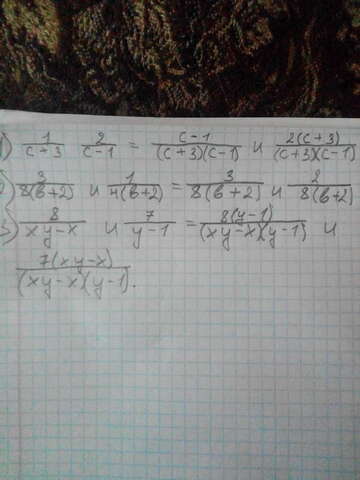 1) 1/(c+3) 2/(c-1) = (c-1)/((c+3)(c-1)) и 2(c+3)/((c+3)(c-1))
2) 3/(8(в+2)) и 1/(4(в+2)) = 3/(8(в+2)) и 2/(8(в+2))
3) 8/(xy-x) и 7/(y-1) = 8(y-1)/((xy-x)(y-1)) и
7(xy-x)/((xy-x)(y-1)).